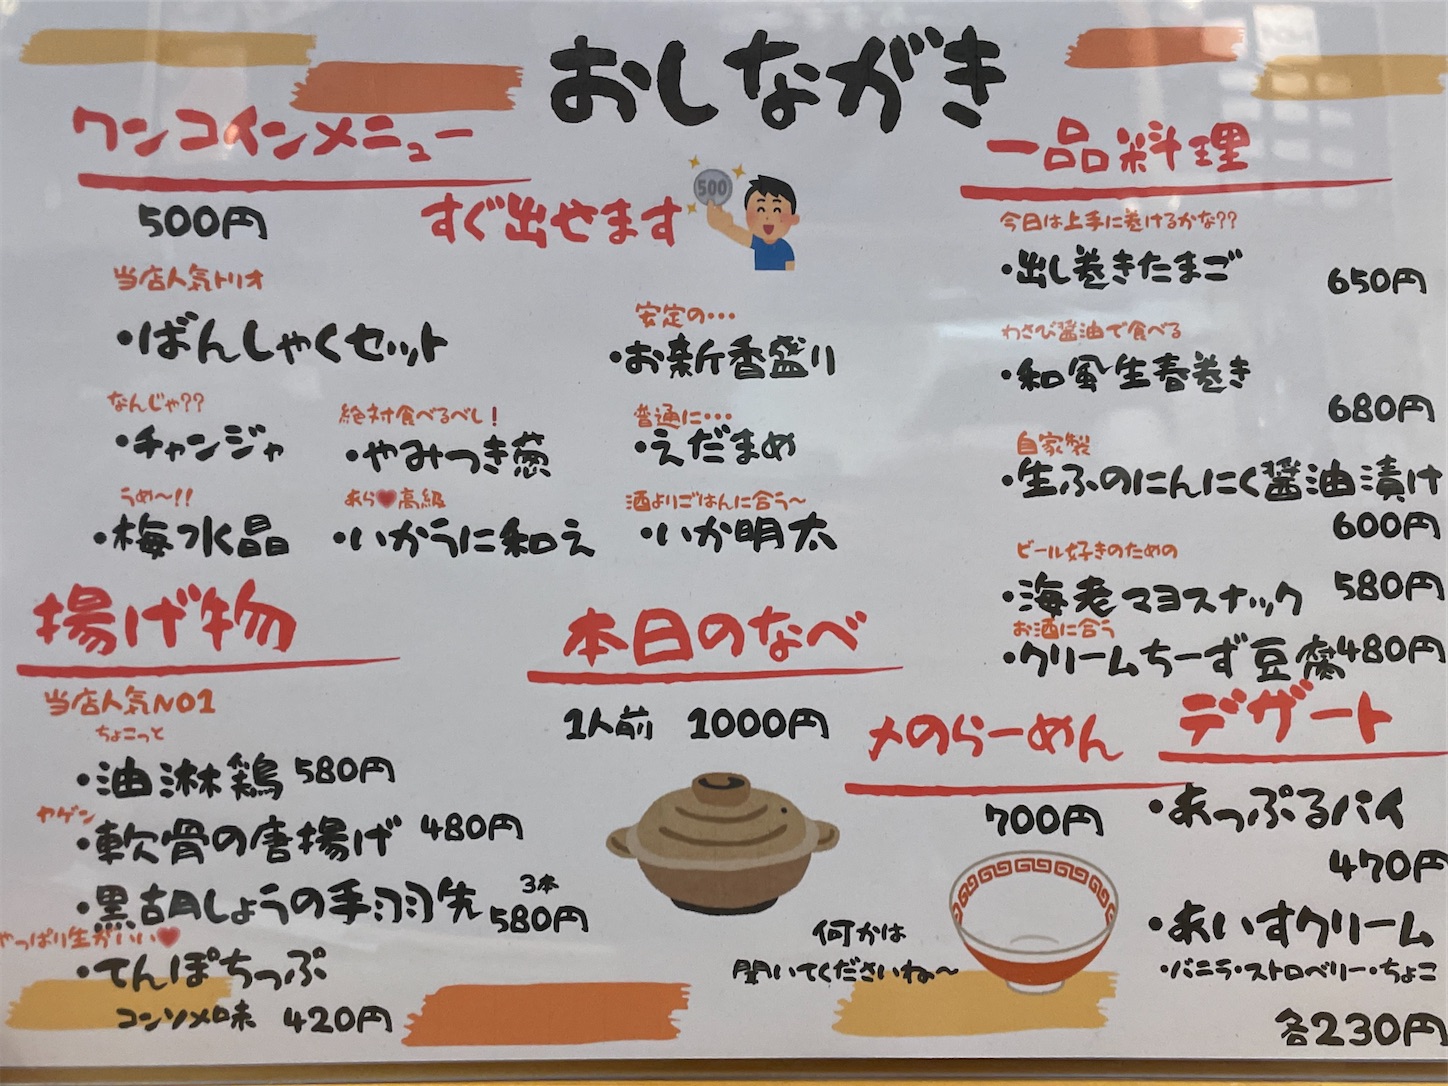 おしながき
ワンコインメニュー
500円
すぐ出せます
500
当店人気トリオ
・ばんしゃくセット
なんじゃ??
・チャンジャ
うめ〜!!
・梅水晶
絶対食べるべし!
・やみつき葱
あら♥高級
・いかうに和え
安定の…
・お新香盛り
普通に…
・えだまめ
酒よりごはんに合う〜
・いか明太
一品料理
今日は上手に巻けるかな??
・出し巻きたまご
650円
わさび醤油で食べる
・和風生春巻き
680円
自家製
・生ふのにんにく醤油漬け
600円
ビール好きのための
・海老マヨスナック 580円
お酒に合う
・クリームちーず豆腐 480円
揚げ物
当店人気NO1
ちょこっと
・油淋鶏 580円
ヤゲン
・軟骨の唐揚げ 480円
・黒胡しょうの手羽先 3本 580円
やっぱり生がいい♥
・てんぽちっぷ
コンソメ味 420円
本日のなべ
1人前 1000円
何かは
聞いてくださいね〜
〆のらーめん
700円
デザート
・あっぷるパイ
470円
・あいすクリーム
・バニラ・ストロベリー・ちょこ
各230円